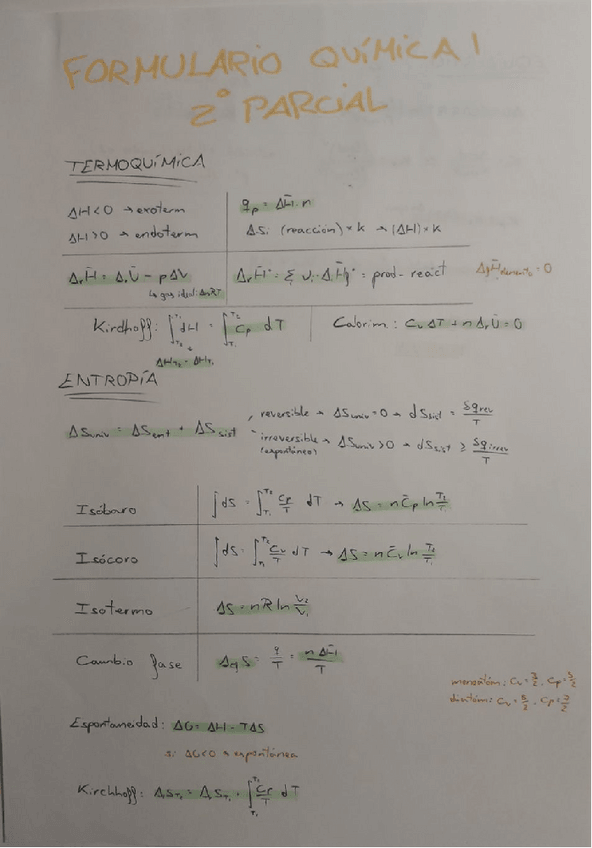 FORMULARIO QUÍMICA I
2º PARCIAL
TERMOQUÍMICA
ΔH<0 → exoterm
ΔH>0 → endoterm
q_p = ΔH̄·n
Δ Si (reacción)×k → (ΔH)×k
Δ_rH̄ = Δ_rŪ - pΔV
↳ gas ideal: ΔnRT
Δ_rH̄° = Σ ν_i·Δ_fH̄_i° = prod - react
Δ_fH̄_elemento = 0
Kirchhoff: ∫_{T_1}^{T_2} dH = ∫_{T_1}^{T_2} C_p dT
ΔH_{T_2} - ΔH_{T_1}
Calorim.: C_v ΔT + n Δ_rŪ = 0
ENTROPÍA
ΔS_univ = ΔS_ent + ΔS_sist
reversible → ΔS_univ=0 → dS_sist = δq_rev/T
irreversible → ΔS_univ>0 → dS_sist ≥ δq_irrev/T
(espontáneo)
Isóbaro ∫dS = ∫_{T_1}^{T_2} C_p/T dT → ΔS = nC̄_p ln T_2/T_1
Isócoro ∫dS = ∫_{T_1}^{T_2} C_v/T dT → ΔS = nC̄_v ln T_2/T_1
Isotermo ΔS = nR ln V_2/V_1
Cambio fase S = q/T = nΔH̄/T
monoatóm: C_v = 3/2, C_p = 5/2
diatóm: C_v = 5/2, C_p = 7/2
Espontaneidad: ΔG = ΔH - TΔS
si ΔG<0 → espontánea
Kirchhoff: Δ_rS_{T_2} = Δ_rS_{T_1} + ∫_{T_1}^{T_2} C_p/T dT